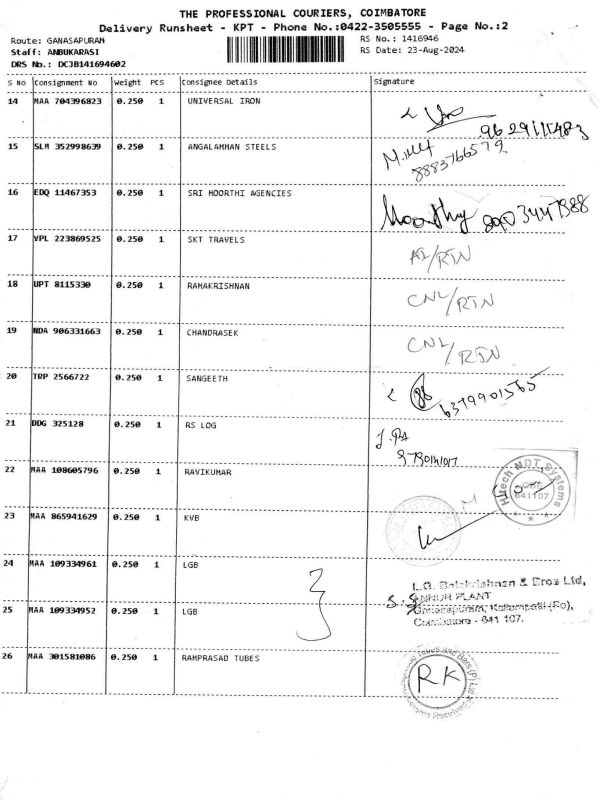 THE PROFESSIONAL COURIERS, COIMBATORE
Delivery Runsheet - KPT - Phone No.:0422-3505555 - Page No.:2
Route: GANASAPURAM
RS No.: 1416946
Staff: ANBUKARASI
RS Date: 23-Aug-2024
DRS No.: DCJB141694602
S No Consignment No Weight PCS Consignee Details Signature
14 MAA 704396823 0.250 1 UNIVERSAL IRON
15 SLM 352998639 0.250 1 ANGALAMMAN STEELS 8883766579
16 EDQ 11467353 0.250 1 SRI MOORTHI AGENCIES Moorthy
17 VPL 223869525 0.250 1 SKT TRAVELS /RTN
18 UPT 8115330 0.250 1 RAMAKRISHNAN CNL/RTN
19 NDA 906331663 0.250 1 CHANDRASEK CNL/RTN
20 TRP 2566722 0.250 1 SANGEETH 6379901565
21 DDG 325128 0.250 1 RS LOG
22 MAA 108605796 0.250 1 RAVIKUMAR
Hitech MDT Systems
641107
23 MAA 865941629 0.250 1 KVB
24 MAA 109334961 0.250 1 LGB
L.G. Balakrishnan & Bros Ltd,
ANNUR PLANT
25 MAA 109334952 0.250 1 LGB
Ganesapuram, Kattampatti (Po),
Coimbatore - 641 107.
26 MAA 301581086 0.250 1 RAMPRASAD TUBES
RK